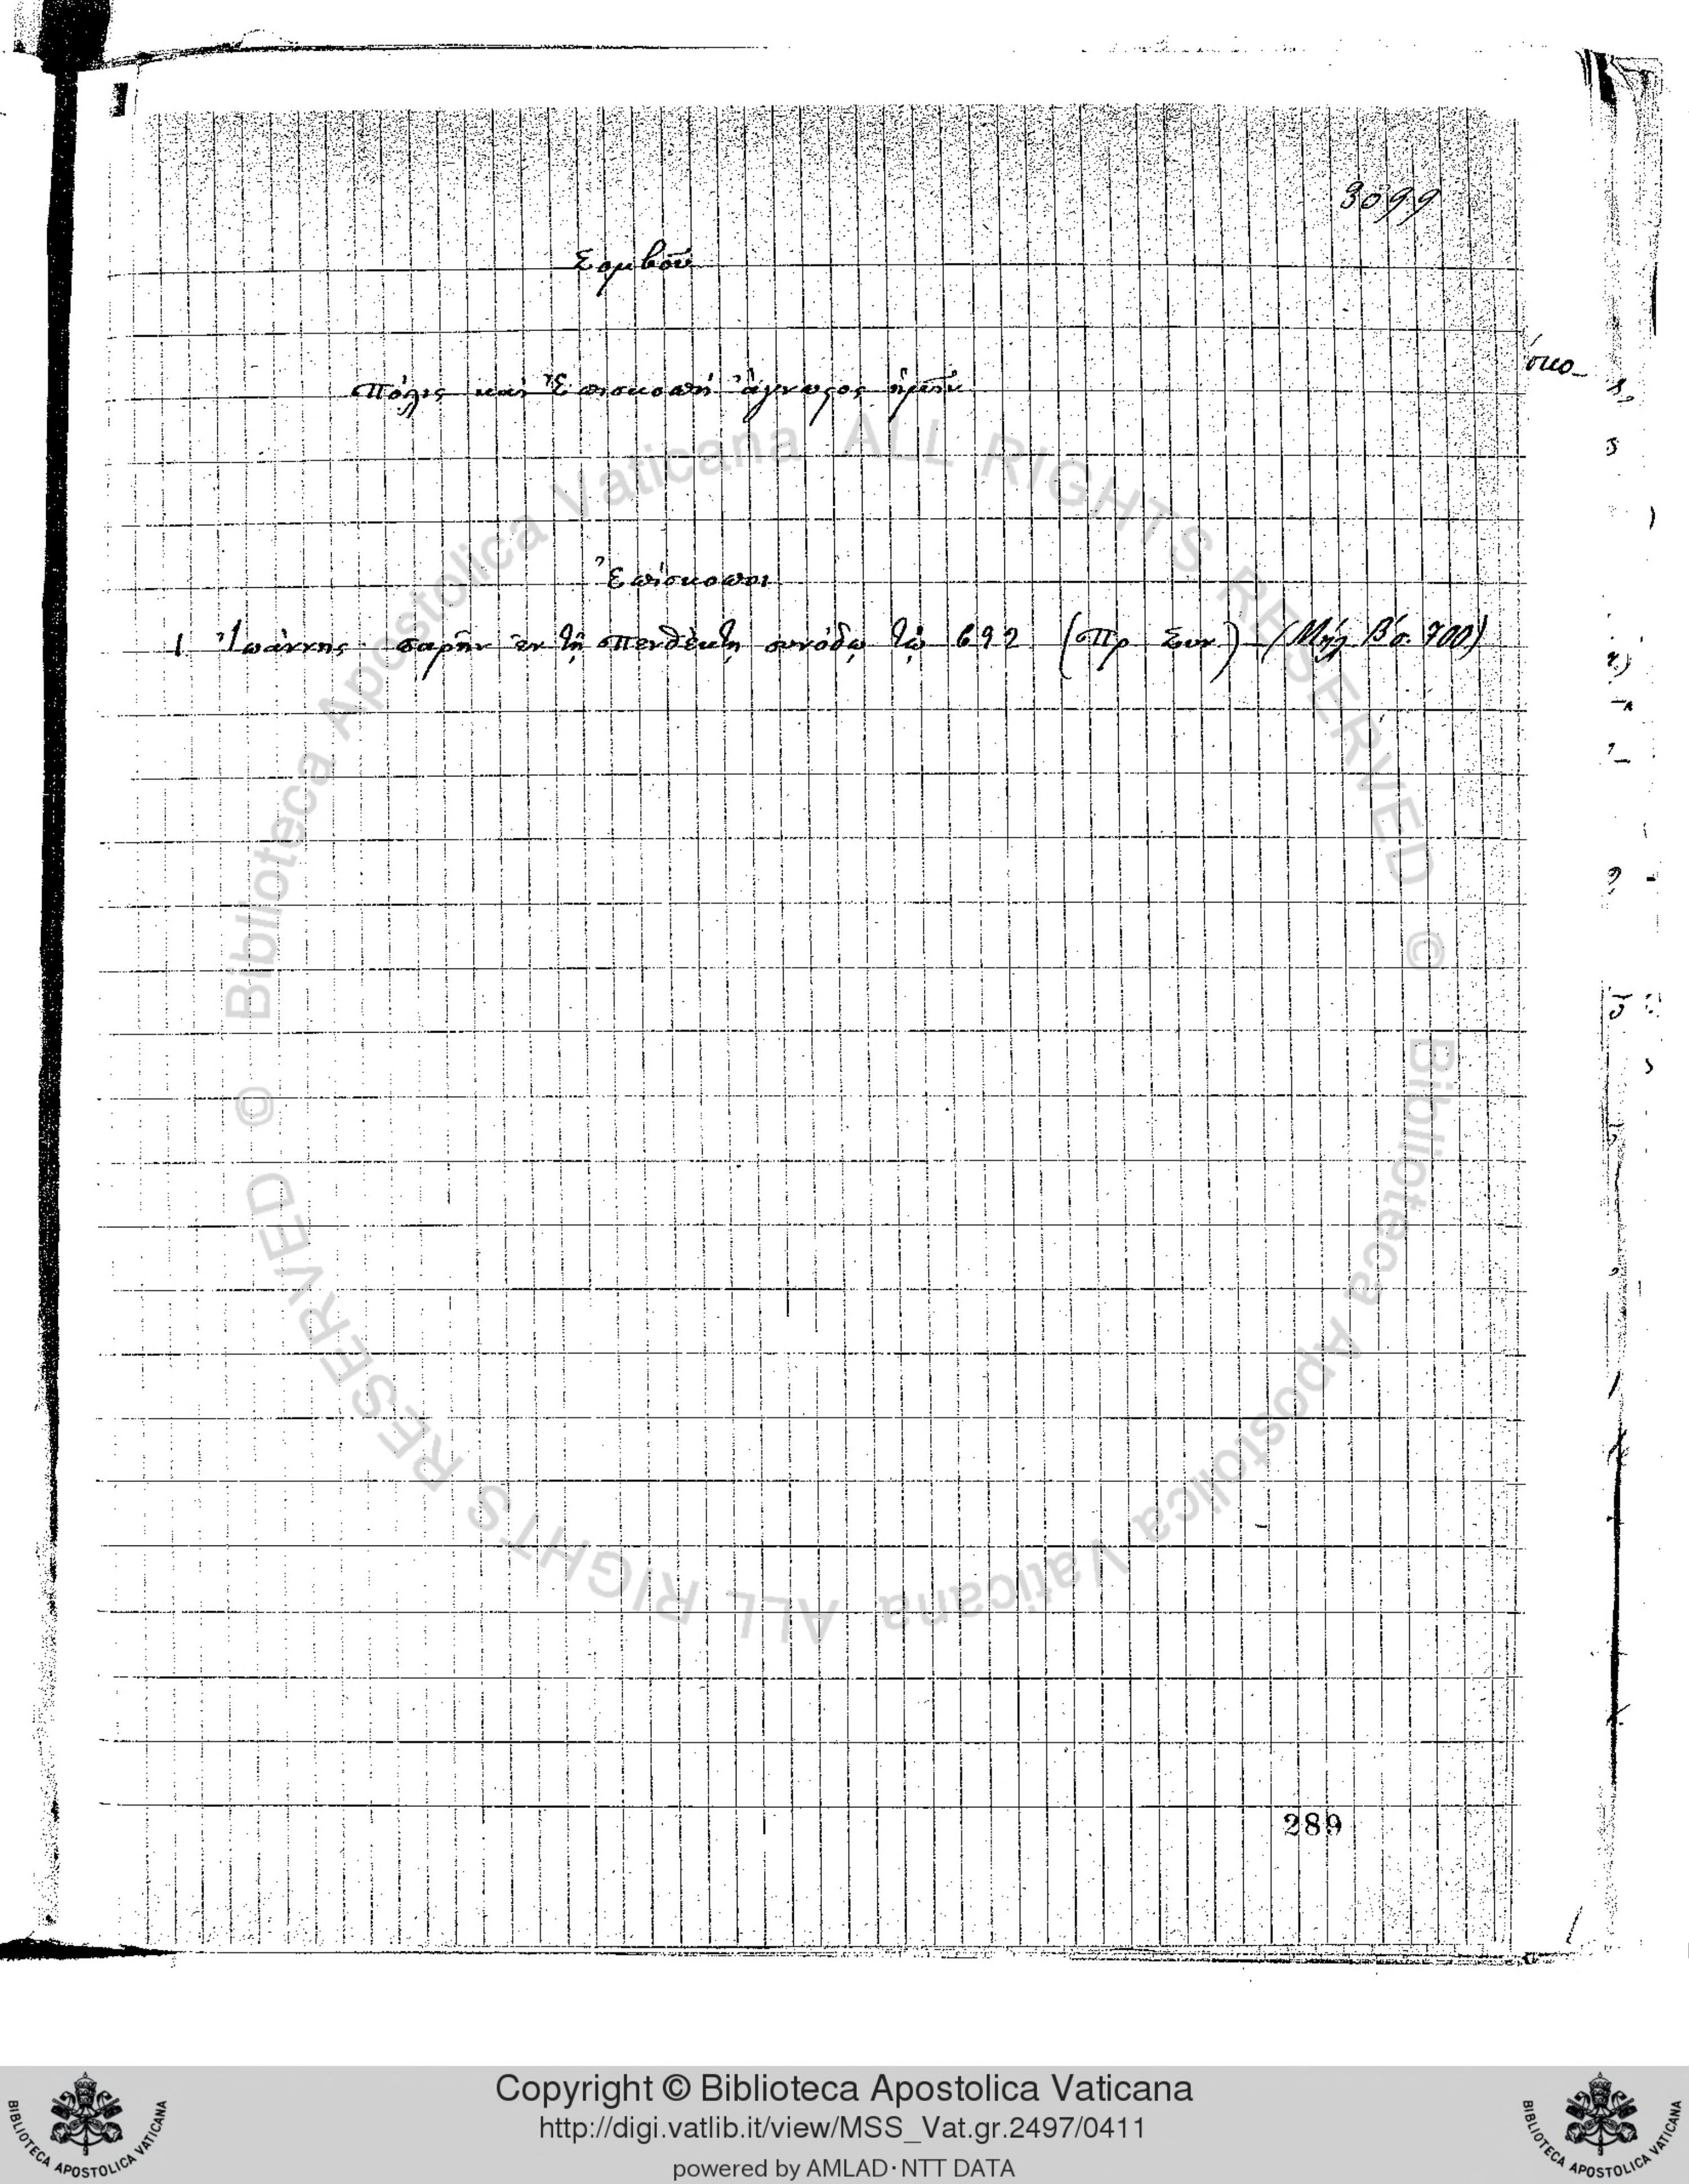 3099
Σομβοῦ
Πόλις καὶ Ἐπισκοπὴ ἄγνωστος ἡμῖν
Ἐπίσκοποι
1. Ἰωάννης παρῆν ἐν τῇ Πενθέκτῃ συνόδῳ τῷ 692 (Πρ Συν.) (Μήλ Β΄ σ. 700)
289
Copyright © Biblioteca Apostolica Vaticana
http://digi.vatlib.it/view/MSS_Vat.gr.2497/0411
powered by AMLAD·NTT DATA
BIBLIOTECA APOSTOLICA VATICANA
BIBLIOTECA APOSTOLICA VATICANA
© Biblioteca Apostolica Vaticana ALL RIGHTS RESERVED
© Biblioteca Apostolica Vaticana ALL RIGHTS RESERVED